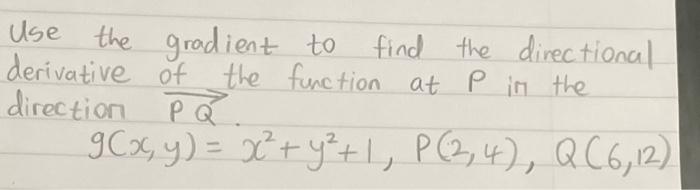 Use the gradient to find the directional
derivative of the function at P in the
direction $\overrightarrow{PQ}$.
g(x,y) = x²+y²+1, P(2,4), Q(6,12)